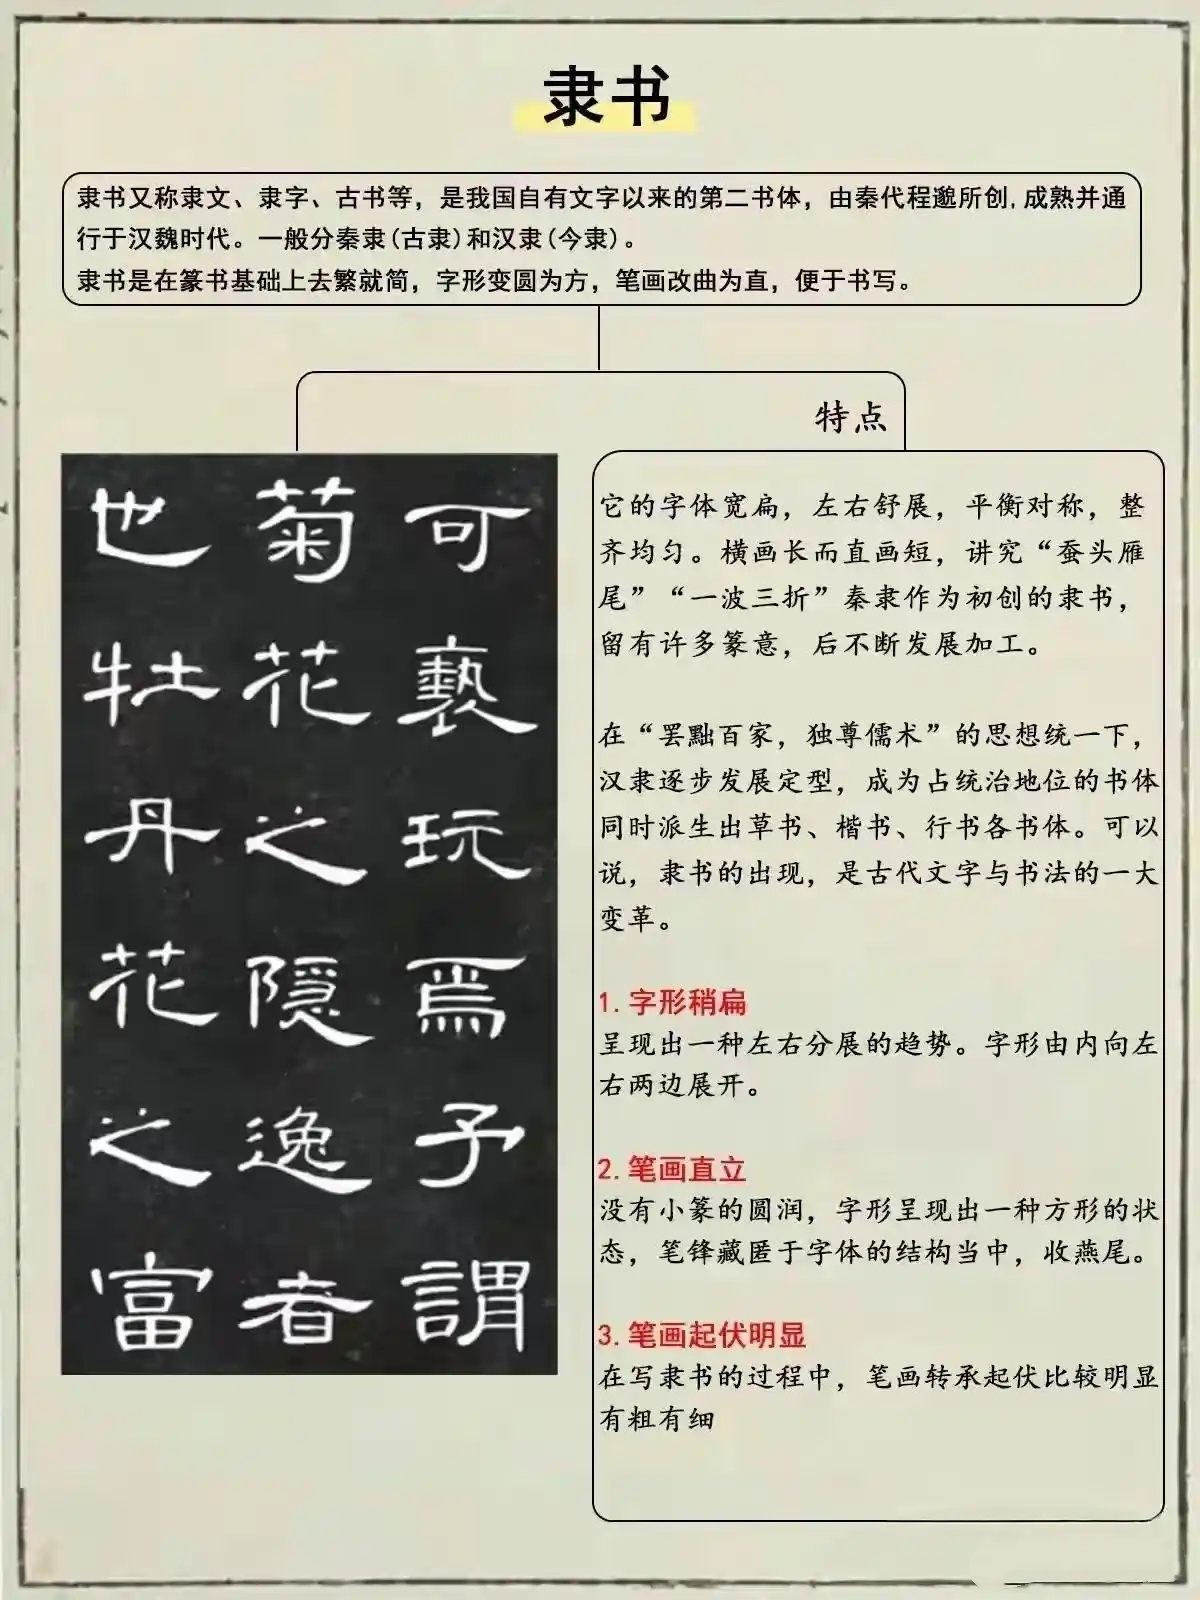 隶书
隶书又称隶文、隶字、古书等，是我国自有文字以来的第二书体，由秦代程邈所创,成熟并通
行于汉魏时代。一般分秦隶(古隶)和汉隶(今隶)。
隶书是在篆书基础上去繁就简，字形变圆为方，笔画改曲为直，便于书写。
特点
可褻玩焉予謂
菊花之隐逸者
也牡丹花之富
它的字体宽扁，左右舒展，平衡对称，整
齐均匀。横画长而直画短，讲究“蚕头雁
尾”“一波三折”秦隶作为初创的隶书，
留有许多篆意，后不断发展加工。
在“罢黜百家，独尊儒术”的思想统一下，
汉隶逐步发展定型，成为占统治地位的书体
同时派生出草书、楷书、行书各书体。可以
说，隶书的出现，是古代文字与书法的一大
变革。
1.字形稍扁
呈现出一种左右分展的趋势。字形由内向左
右两边展开。
2.笔画直立
没有小篆的圆润，字形呈现出一种方形的状
态，笔锋藏匿于字体的结构当中，收燕尾。
3.笔画起伏明显
在写隶书的过程中，笔画转承起伏比较明显
有粗有细